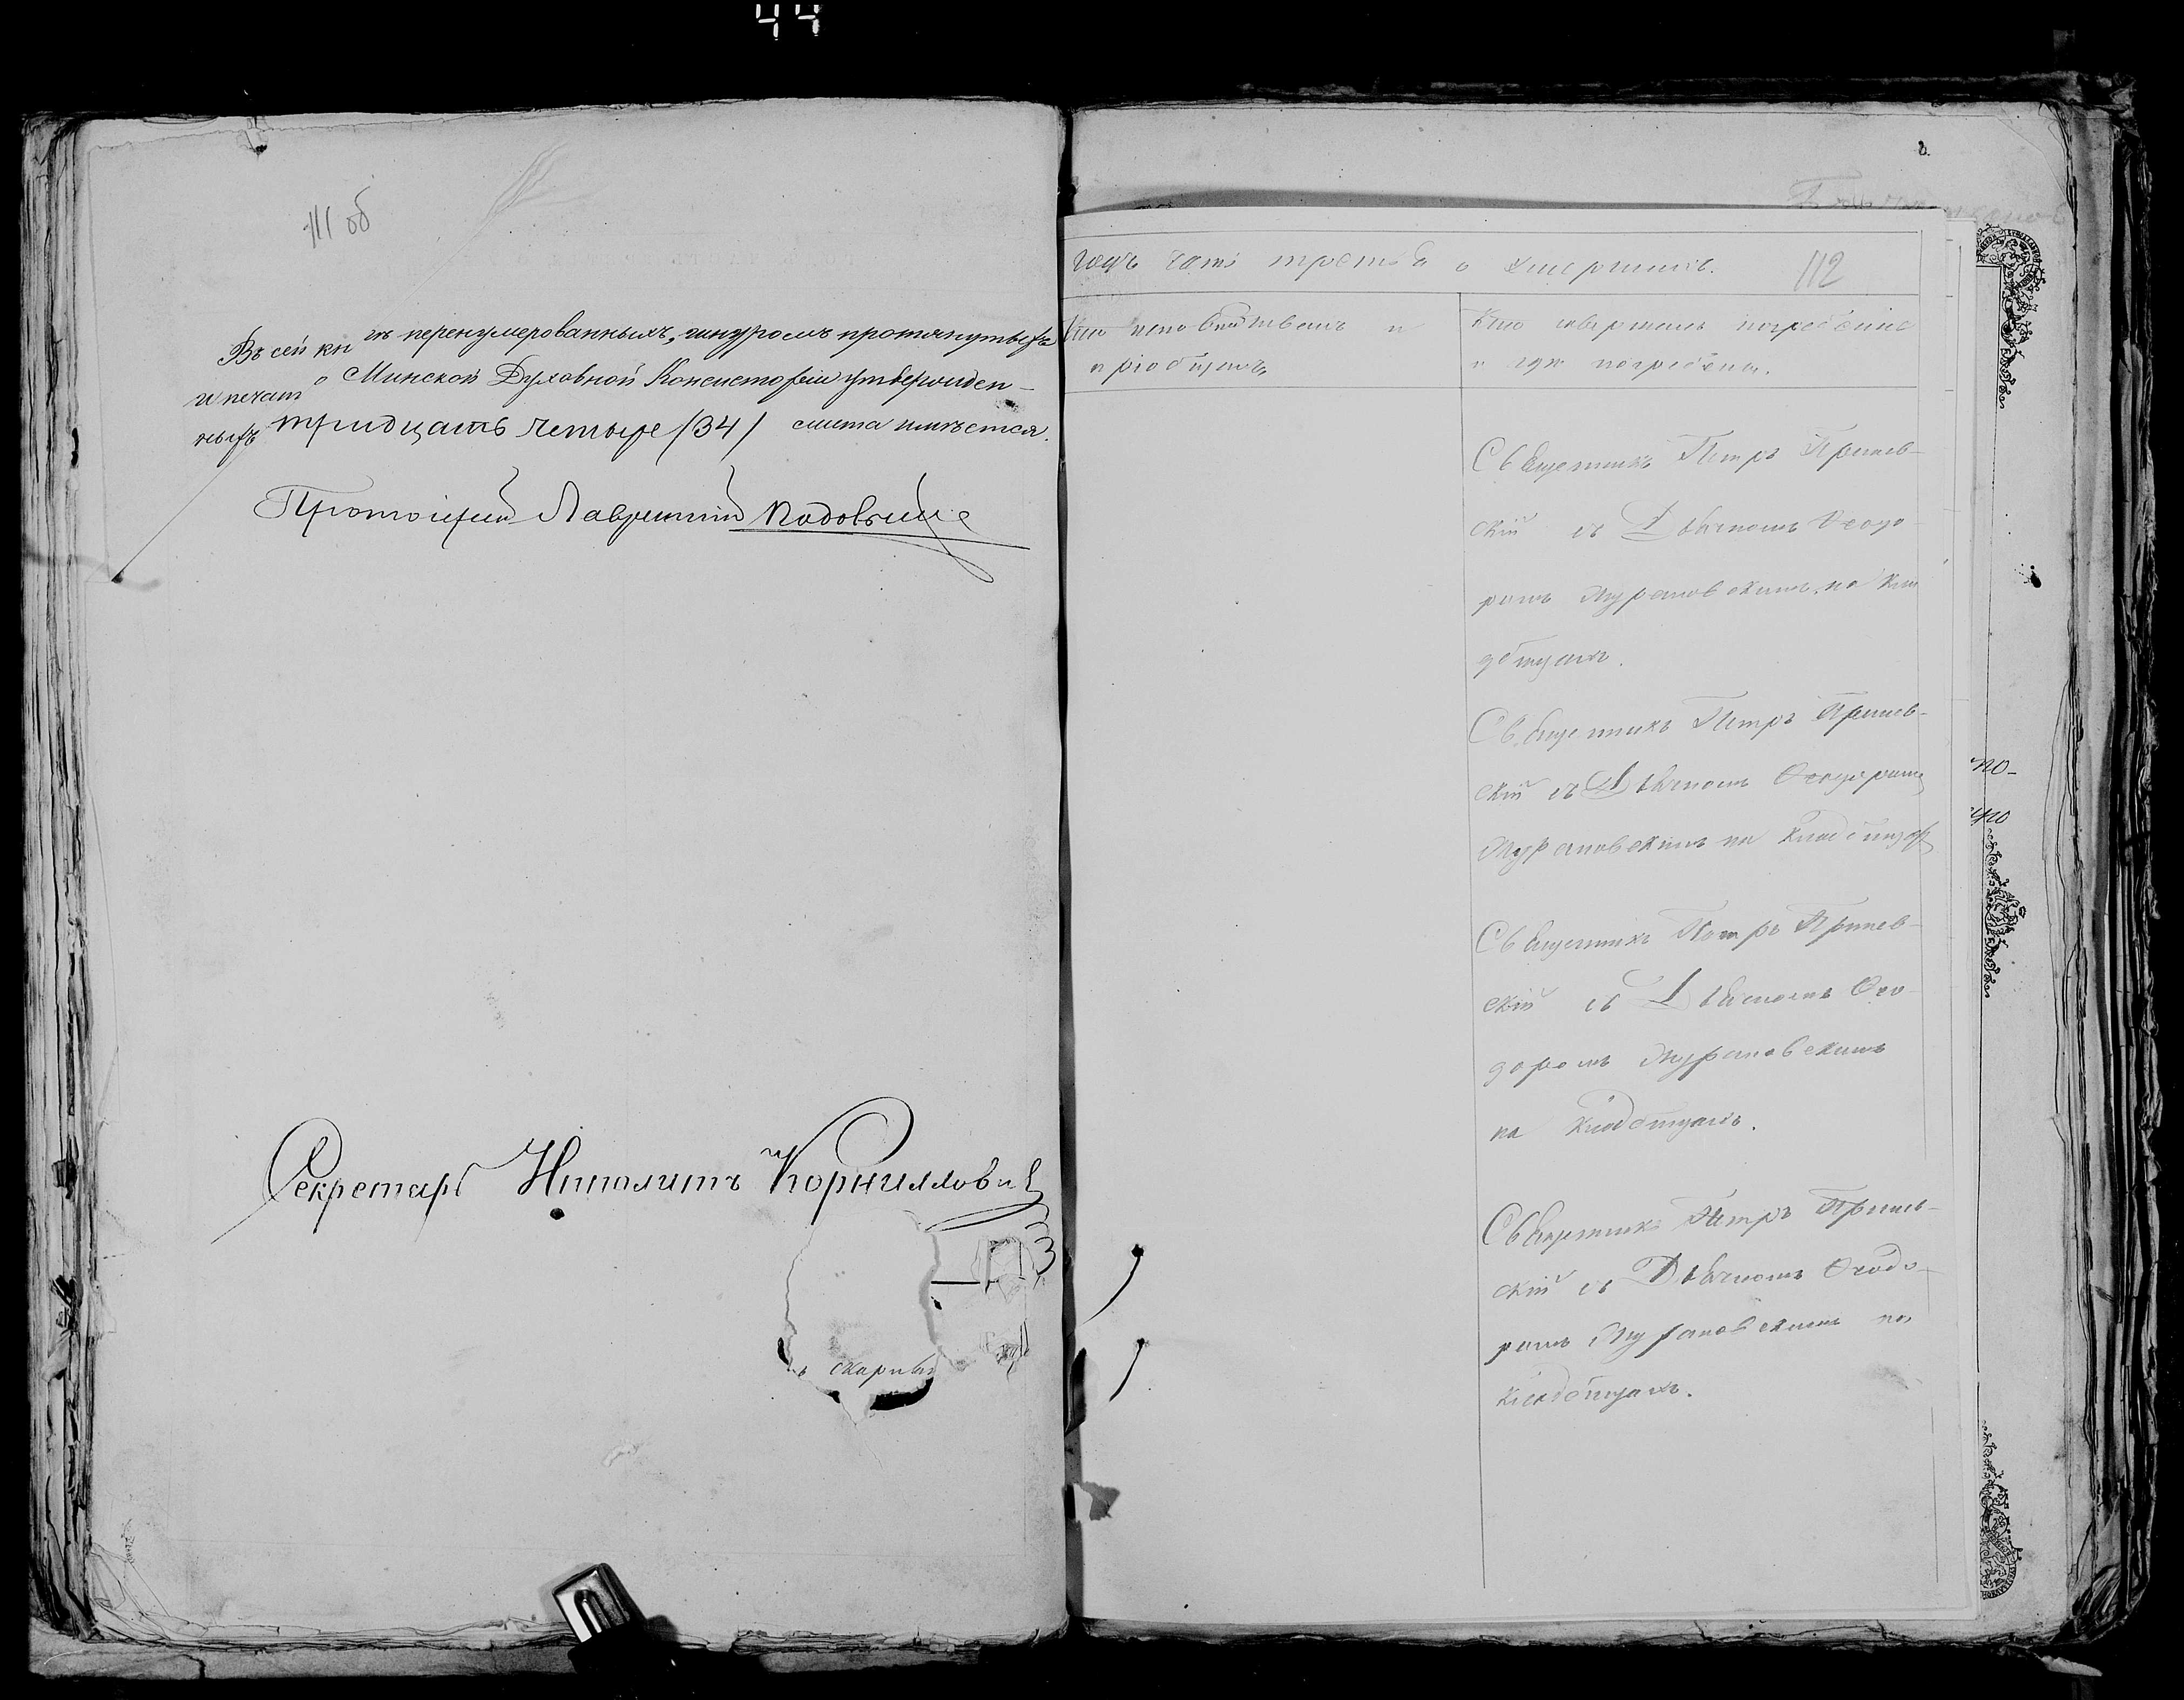 44
111 об
Въ сей кн тъ перенумерованныхъ, шнуромъ протянутыхъ
и печат о Минской Духовной Консисторіи утвержден-
ныхъ тридцать четыре /34/ листа имѣется.
Протоіерей Лаврентій
Секретарь Ипполитъ Корниллович
скарпы
годъ часть третья о умершихъ. 112
Кто исповѣдывалъ и
пріобщалъ
Кто совершалъ погребеніе
и гдѣ погребены.
Священникъ Петръ Прилев-
скій съ Дьячкомъ Ѳеодо
ромъ Журановскимъ на Кла
дбищахъ.
Священникъ Петръ Прилев-
скій съ Дьячкомъ Ѳеодоромъ
Журановскимъ на Кладбищахъ
Священникъ Петръ Прилев-
скій съ Дьячкомъ Ѳео-
доромъ Журановскимъ
на Кладбищахъ.
Священникъ Петръ Прилев-
скій съ Дьячкомъ Ѳеодо-
ромъ Журановскимъ на
Кладбищахъ.
по-